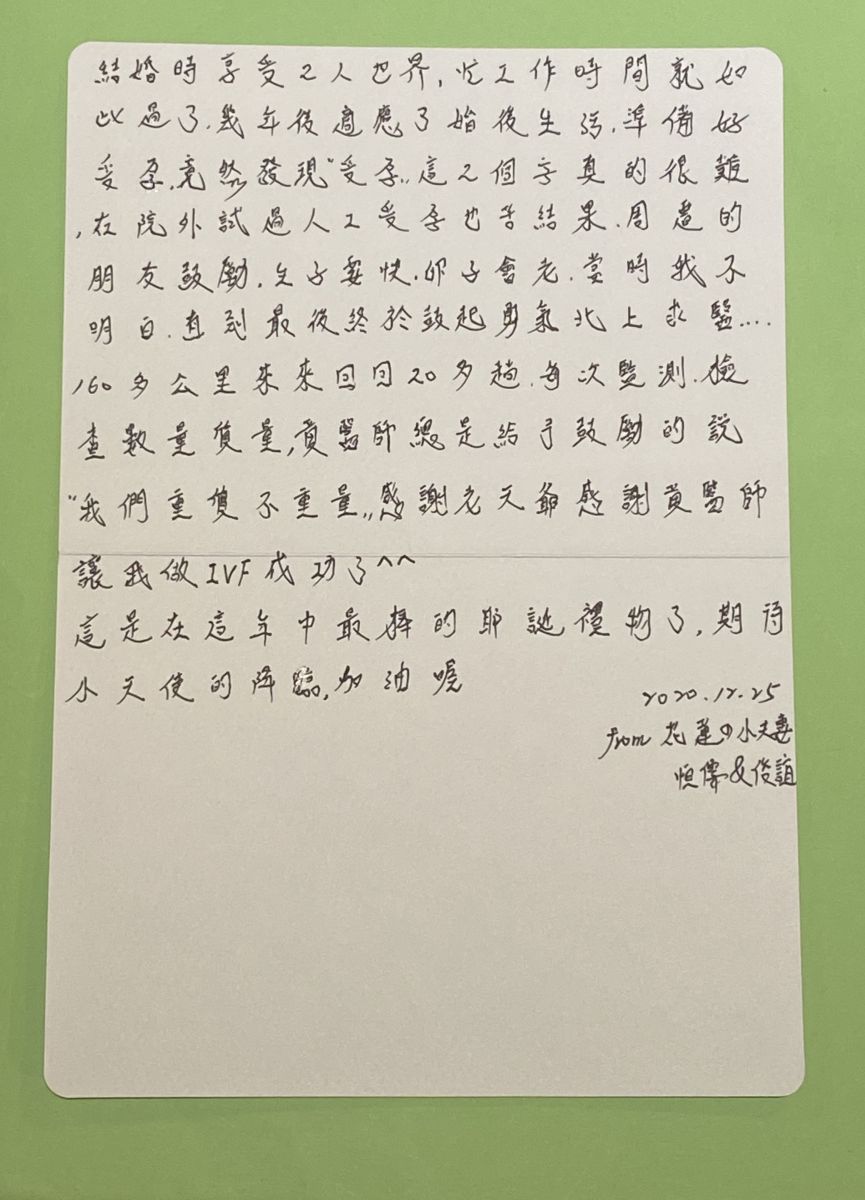 結婚時享受2人世界,忙工作時間就如
此過了.幾年後適應了婚後生活.準備好
受孕,竟然發現"受孕"這2個字真的很難
,在院外試過人工受孕也苦結果.周遭的
朋友鼓勵.生子要快.卵子會老.當時我不
明白.直到最後終於鼓起勇氣北上求醫....
160多公里來來回回20多趟.每次監測.檢
查數量質量,黃醫師總是給予鼓勵的說
"我們重質不重量"感謝老天爺感謝黃醫師
讓我做IVF成功了^^
這是在這年中最棒的耶誕禮物了,期待
小天使的降臨,加油喔
2020.12.25
from 花蓮の小夫妻
&俊誼